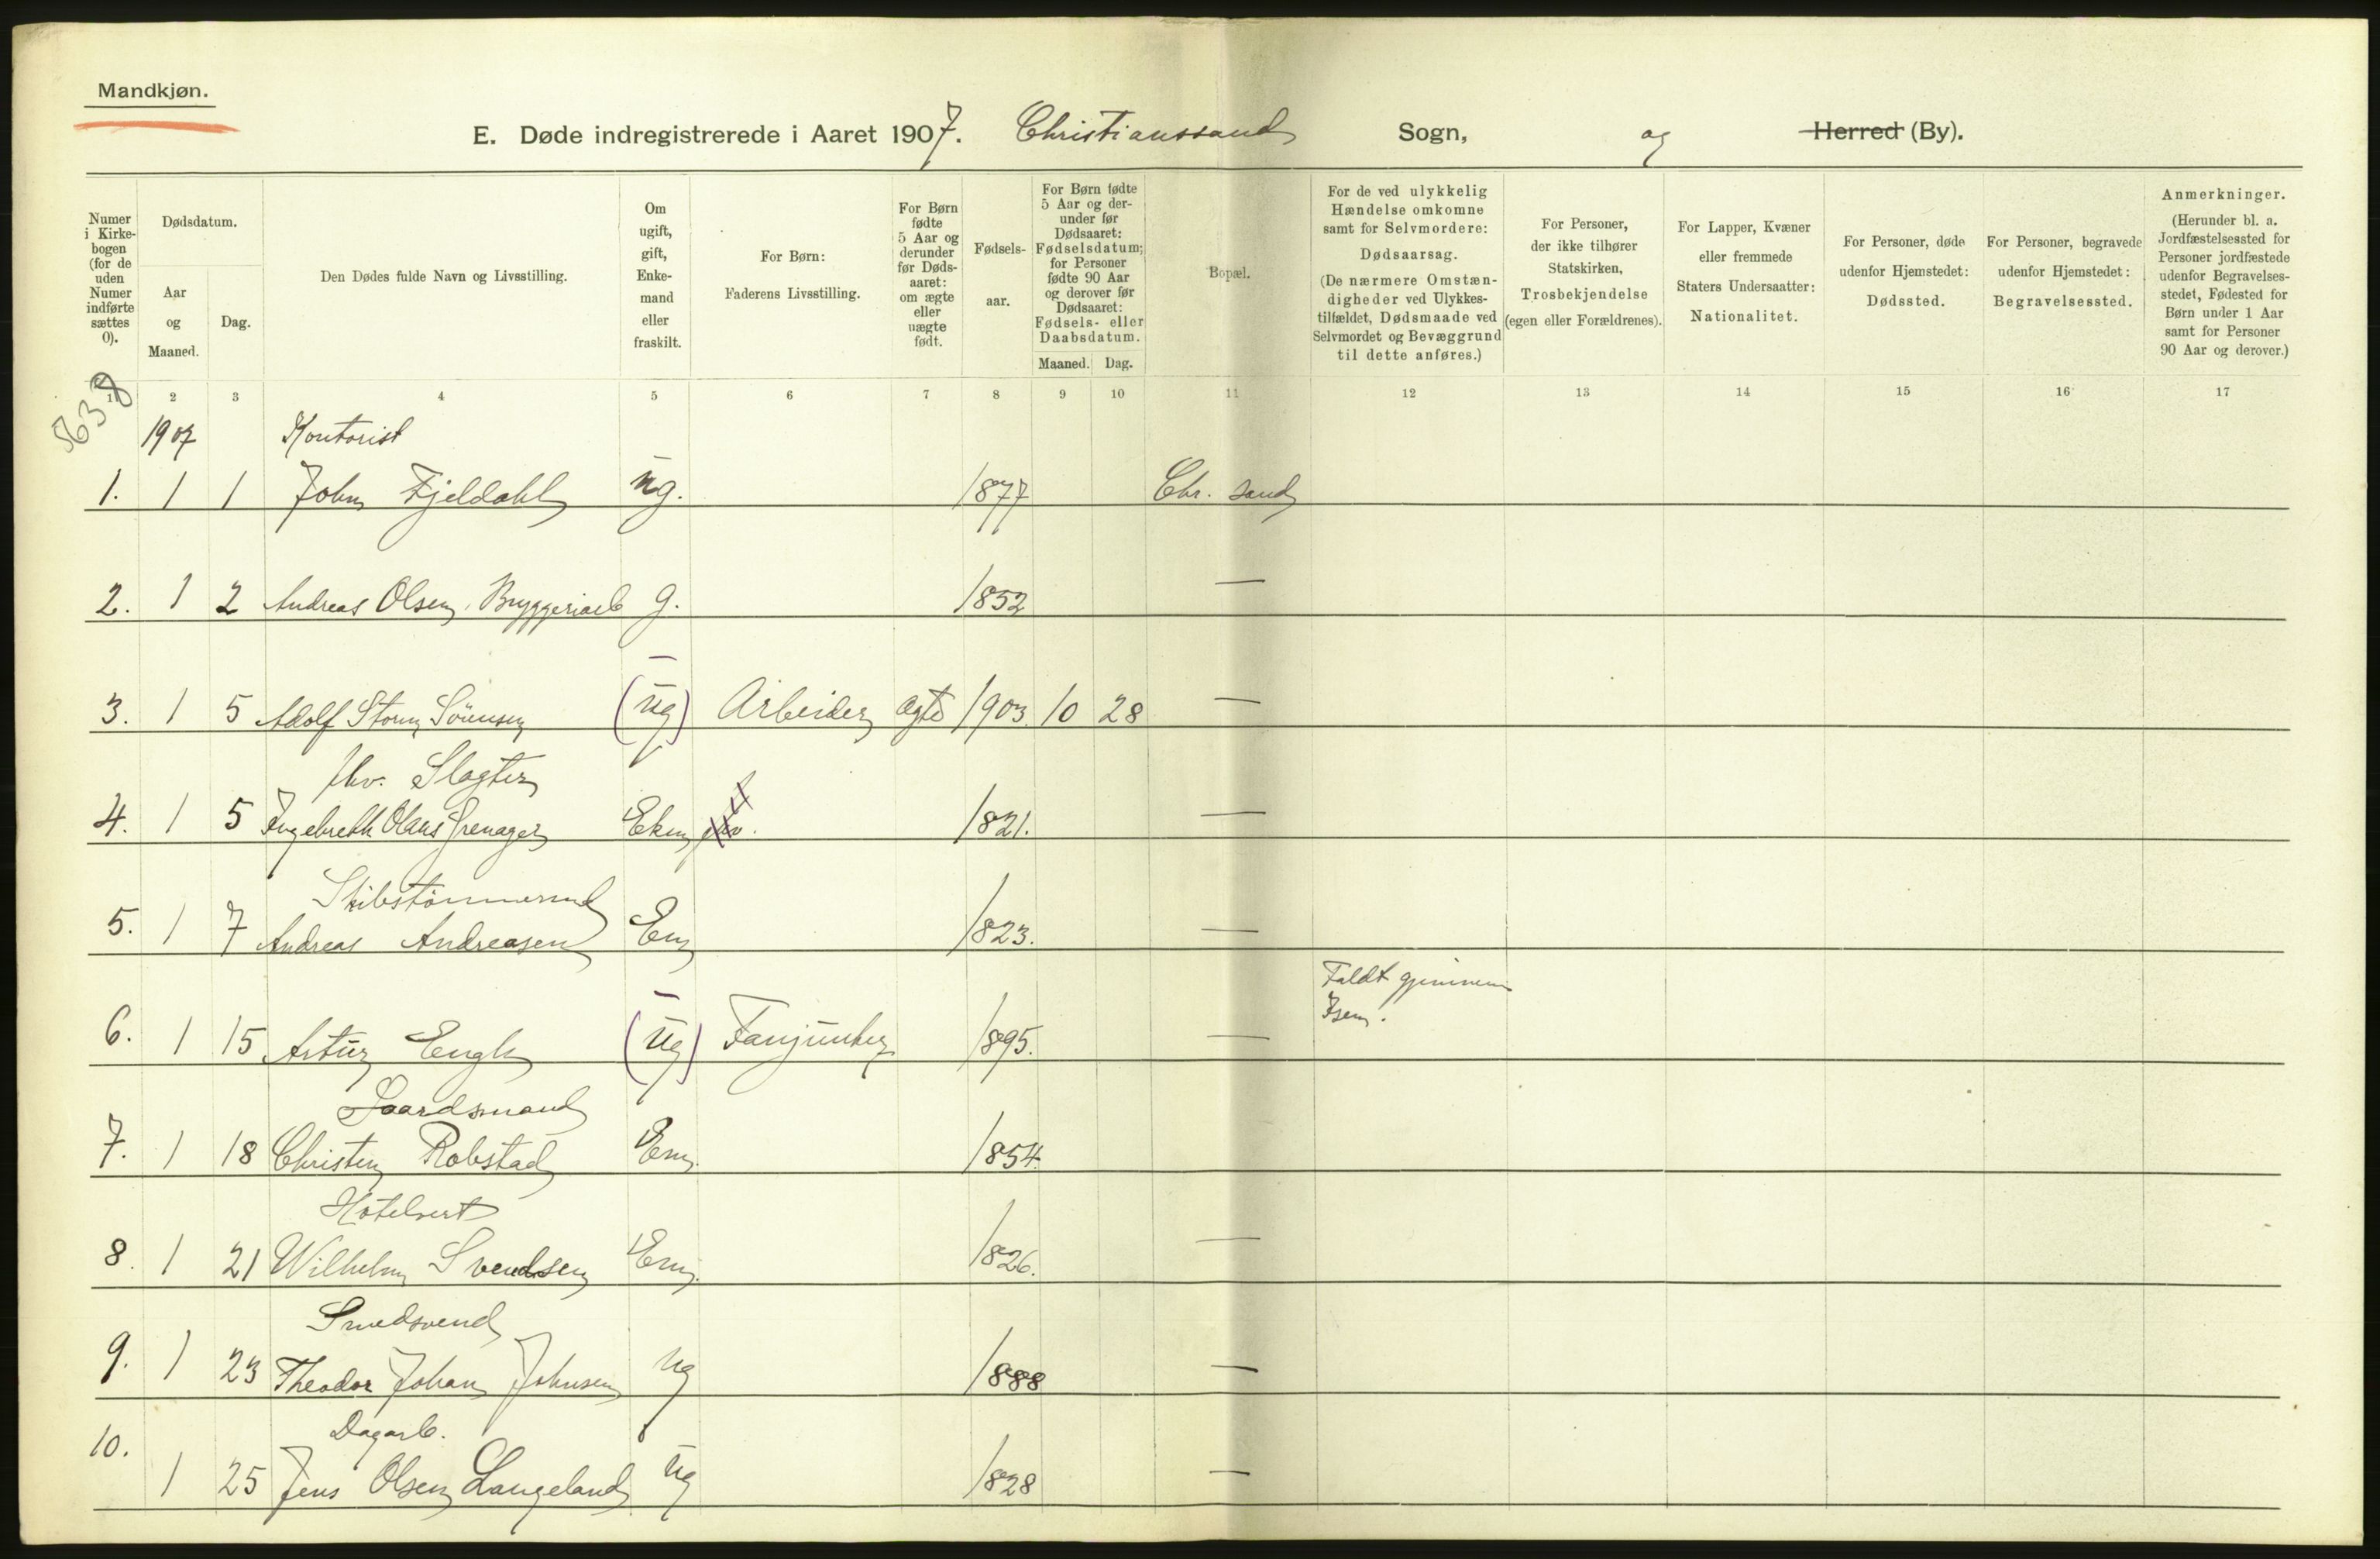 Mandkjøn.
E. Døde indregistrerede i Aaret 1907. Christianssand Sogn, og Herred (By).
Numer i Kirkebogen (for de uden Numer indførte sættes 0).
Dødsdatum.
Aar og Maaned.
Dag.
Den Dødes fulde Navn og Livsstilling.
Om ugift, gift, Enkemand eller fraskilt.
For Børn: Faderens Livsstilling.
For Børn fødte 5 Aar og derunder før Dødsaaret: om ægte eller uægte født.
Fødselsaar.
For Børn fødte 5 Aar og derunder før Dødsaaret: Fødselsdatum; for Personer fødte 90 Aar og derover før Dødsaaret: Fødsels- eller Daabsdatum.
Maaned. Dag.
Bopæl.
For de ved ulykkelig Hændelse omkomne samt for Selvmordere: Dødsaarsag. (De nærmere Omstændigheder ved Ulykkestilfældet, Dødsmaade ved Selvmordet og Bevæggrund til dette anføres.)
For Personer, der ikke tilhører Statskirken, Trosbekjendelse (egen eller Forældrenes).
For Lapper, Kvæner eller fremmede Staters Undersaatter: Nationalitet.
For Personer, døde udenfor Hjemstedet: Dødssted.
For Personer, begravede udenfor Hjemstedet: Begravelsessted.
Anmerkninger. (Herunder bl. a. Jordfæstelsessted for Personer jordfæstede udenfor Begravelsesstedet, Fødested for Børn under 1 Aar samt for Personer 90 Aar og derover.)
1 2 3 4 5 6 7 8 9 10 11 12 13 14 15 16 17
1907 Kontorist
1. 1 1 John Fjeldahl ug. 1877 Chr. sand
2. 1 2 Andreas Olsen, Bryggeriarb g. 1852 —
3. 1 5 Adolf Storm Sörensen (ug) Arbeider ægte 1903 10 28 —
fhv. Slagter
4. 1 5 Ingebreth Olaus Grenager Ekm 1821. —
Skibstömmermd
5. 1 7 Andreas Andreasen Em 1823. —
Faldt gjennem
Isen.
6. 1 15 Artur Engh (ug) Fanjunker 1895. —
Gaardsmand
7. 1 18 Christen Robstad Em. 1854.
Hotelvert
8. 1 21 Wilhelm Svendsen Em. 1826. —
Smedsvend
9. 1 23 Theodor Johan Johnsen ug 1888 —
Dagarb.
10. 1 25 Jens Olsen Langeland ug 1828 —